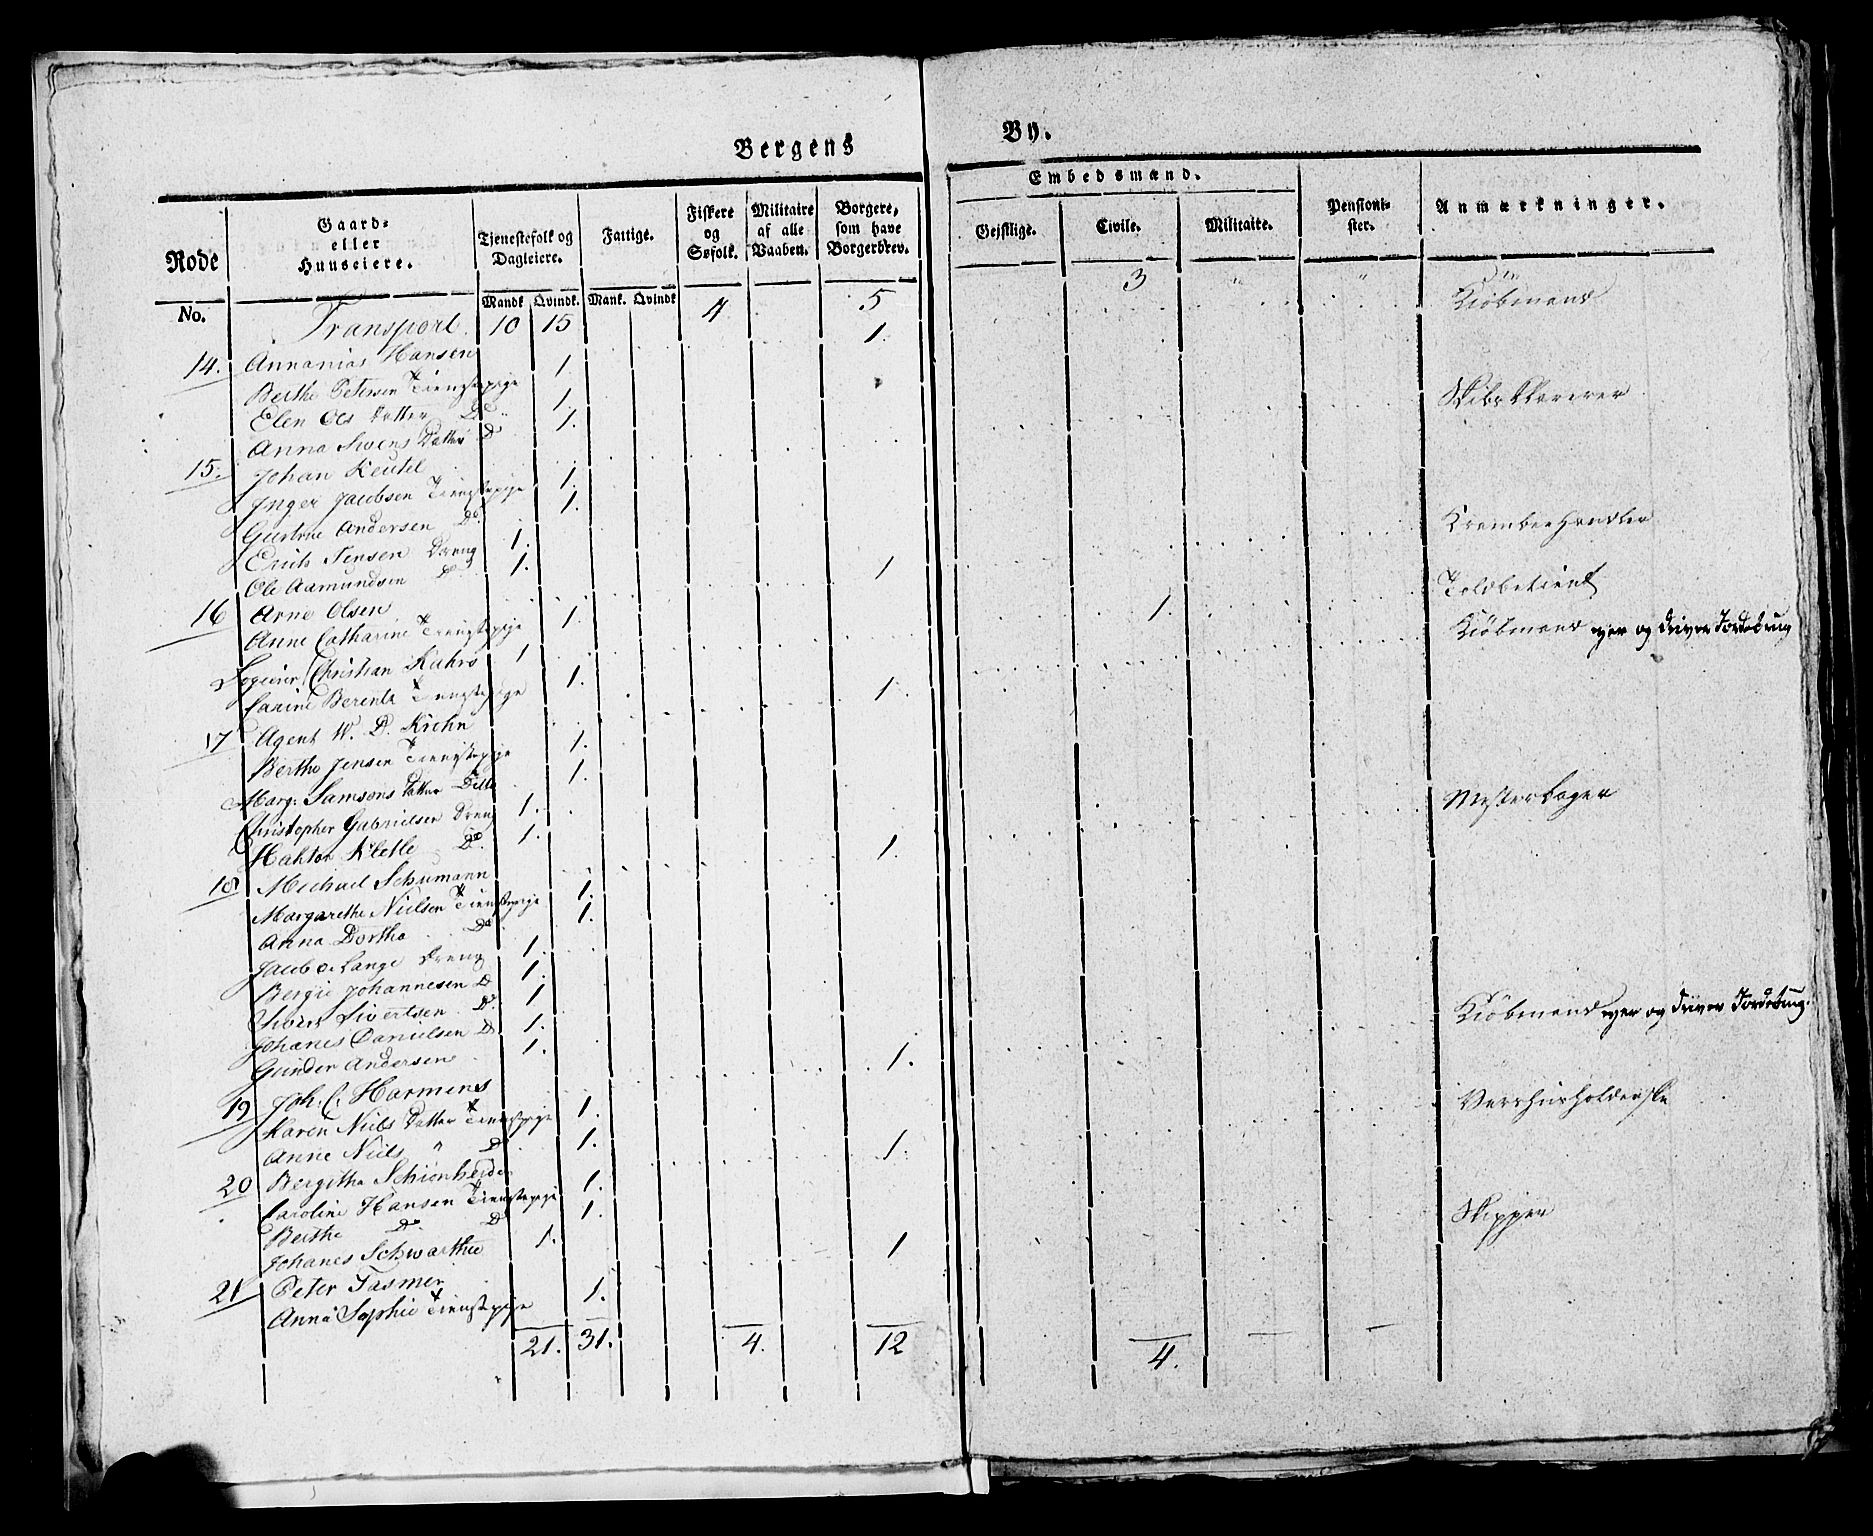 Bergens By.
Rode
No.
Gaard-
eller
Huuseiere.
Tjenestefolk og
Dagleiere.
Mandk Qvindk.
Fattige.
Mank. Qvindk
Fiskere
og
Søfolk.
Militaire
af alle
Vaaben.
Borgere,
som have
Borgerbrev.
Embedsmænd.
Geistlige.
Civile.
Militaire.
Pensioni-
ster.
Anmærkninger.
Transport. 10 15 4 5 3 " "
14. Annanias Hansen 1. Kiöbmand
Berthe Petersen Tienestepige 1.
Elen Ols Datter Do 1.
Anna Swens Datter Do 1.
15. Johan Keutel Skibs Klarerer
Inger Jacobsen Tienestepige 1.
Gurtrue Andersen Do. 1.
Erich Jensen Dreng 1.
Ole Aamundsen Do 1.
16 Arne Olsen 1 Krambeehandler
Anne Catharine Tienestepige 1.
Logerer Christian Kahrs 1 1. Toldbetient
Carine Berents Tienestepige 1.
17 Agent W. D. Krehn 1. Kiöbmand eyer og driver Jordebrug
Berthe Jensen Tienestepige 1.
Marg: Samsons Datter Ditto 1.
Christopher Gabrielsen Dreng 1.
Haktor Kletle Do. 1.
18 Michael Schumann 1. Mesterbager
Margarethe Nielsen Tienestepige 1.
Anna Dorthe Do 1.
Jacob de Lange Dreng 1.
Bergie Johannesen Do 1.
Siverts Sivertsen Do. 1
Johanes Danielsen Do 1.
Gunder Andersen 1.
19 Joh. C. Harmens 1. Kiöbmand eyer og driver Jordebrug.
Karen Niels Datter Tienestepige 1.
Anne Niels " Do 1.
20 Bergithe Schionheider 1. Vertshusholderske
Caroline Hansen Tienestepige 1.
Berthe Do. Do 1.
Johanes Schwarthe 1.
21 Peter Jasmer 1 Skipper
Anna Sophie Tienestepige 1.
21. 31. 4. 12 4.